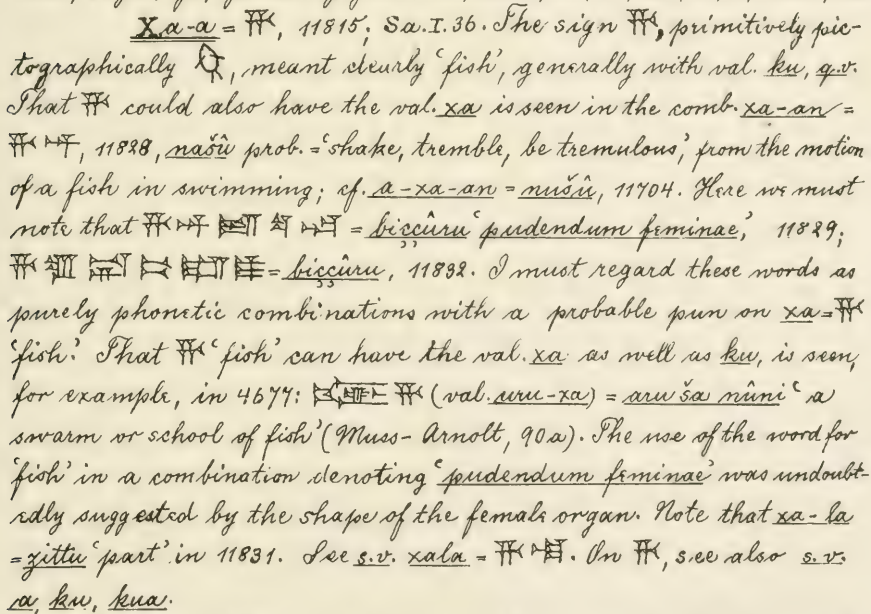 Xa-a = 𒄩, 11815; Sa. I. 36. The sign 𒄩, primitively pic-
tographically , meant clearly ‘fish’, generally with val. ku, q.v.
That 𒄩 could also have the val. xa is seen in the comb. xa-an =
𒄩 𒀭, 11828, našû prob. = ‘shake, tremble, be tremulous,’ from the motion
of a fish in swimming; cf. a-xa-an = nušû, 11704. Here we must
note that 𒄩 𒀭 = biççûru ‘pudendum feminae,’ 11829;
𒄩 = biççûru, 11832. I must regard these words as
purely phonetic combinations with a probable pun on xa = 𒄩
‘fish.’ That 𒄩 ‘fish’ can have the val. xa as well as ku, is seen,
for example, in 4677: 𒄩 (val. uru-xa) = aru ša nûni ‘a
swarm or school of fish’ (Muss-Arnolt, 90a). The use of the word for
‘fish’ in a combination denoting ‘pudendum feminae’ was undoubt-
edly suggested by the shape of the female organ. Note that xa-la
= zittu ‘part’ in 11831. See s.v. xala = 𒄩 𒆷. On 𒄩, see also s.v.
a, ku, kua.